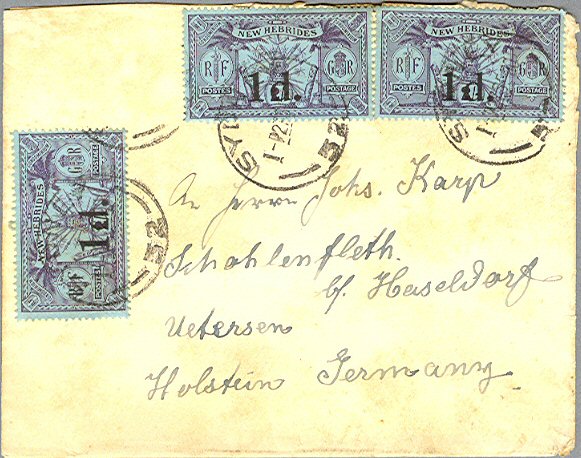 NEW HEBRIDES
R F
G R
1d.
POSTES
POSTAGE
NEW HEBRIDES
R F
G R
1d.
POSTES
POSTAGE
SY
1-P
32
NEW HEBRIDES
R F
G R
1d.
POSTES
POSTAGE
32
An Herrn Johs. Karp
Schohlenfleth.
b/ Haseldorf
Uetersen
Holstein Germany